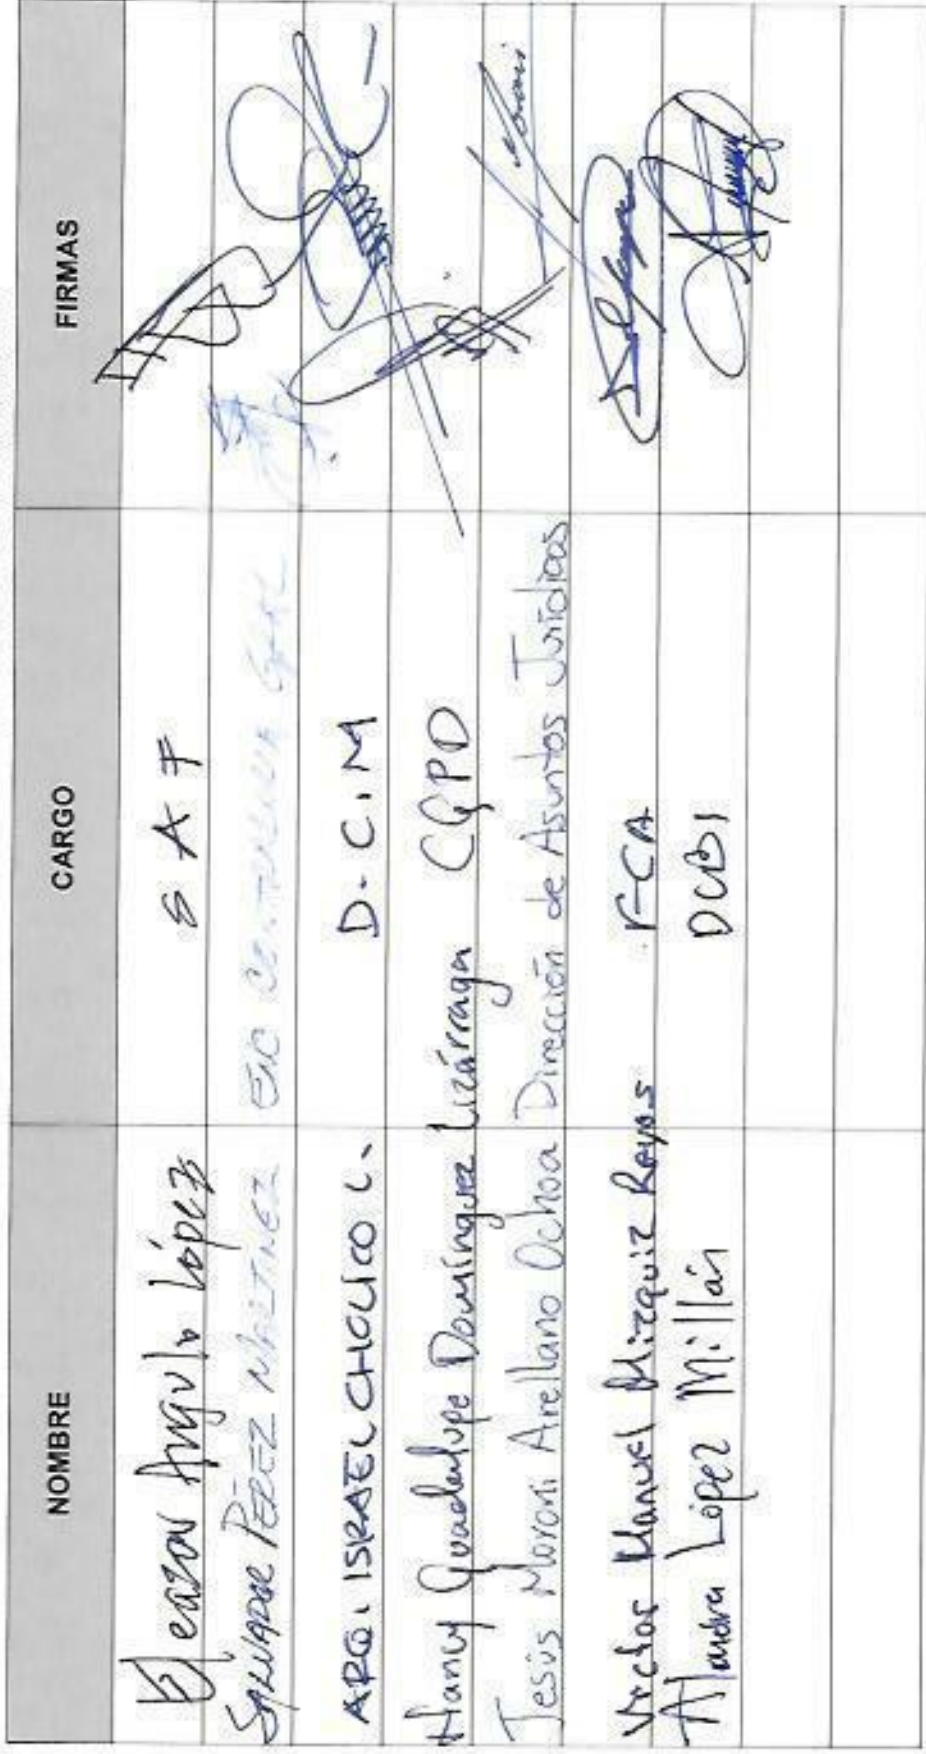 NOMBRE CARGO FIRMAS
Eleazar Angulo López S A F
SALVADOR PÉREZ MARTÍNEZ
ARQ. ISRAEL CHOLICO L. D.C.M
Nancy Guadalupe Domínguez Lizárraga CGPD
Jesús Moroni Arellano Ochoa Dirección de Asuntos Jurídicos
Victor Manuel Mizquiz Reyes FCA
Alondra López Millán DCBI